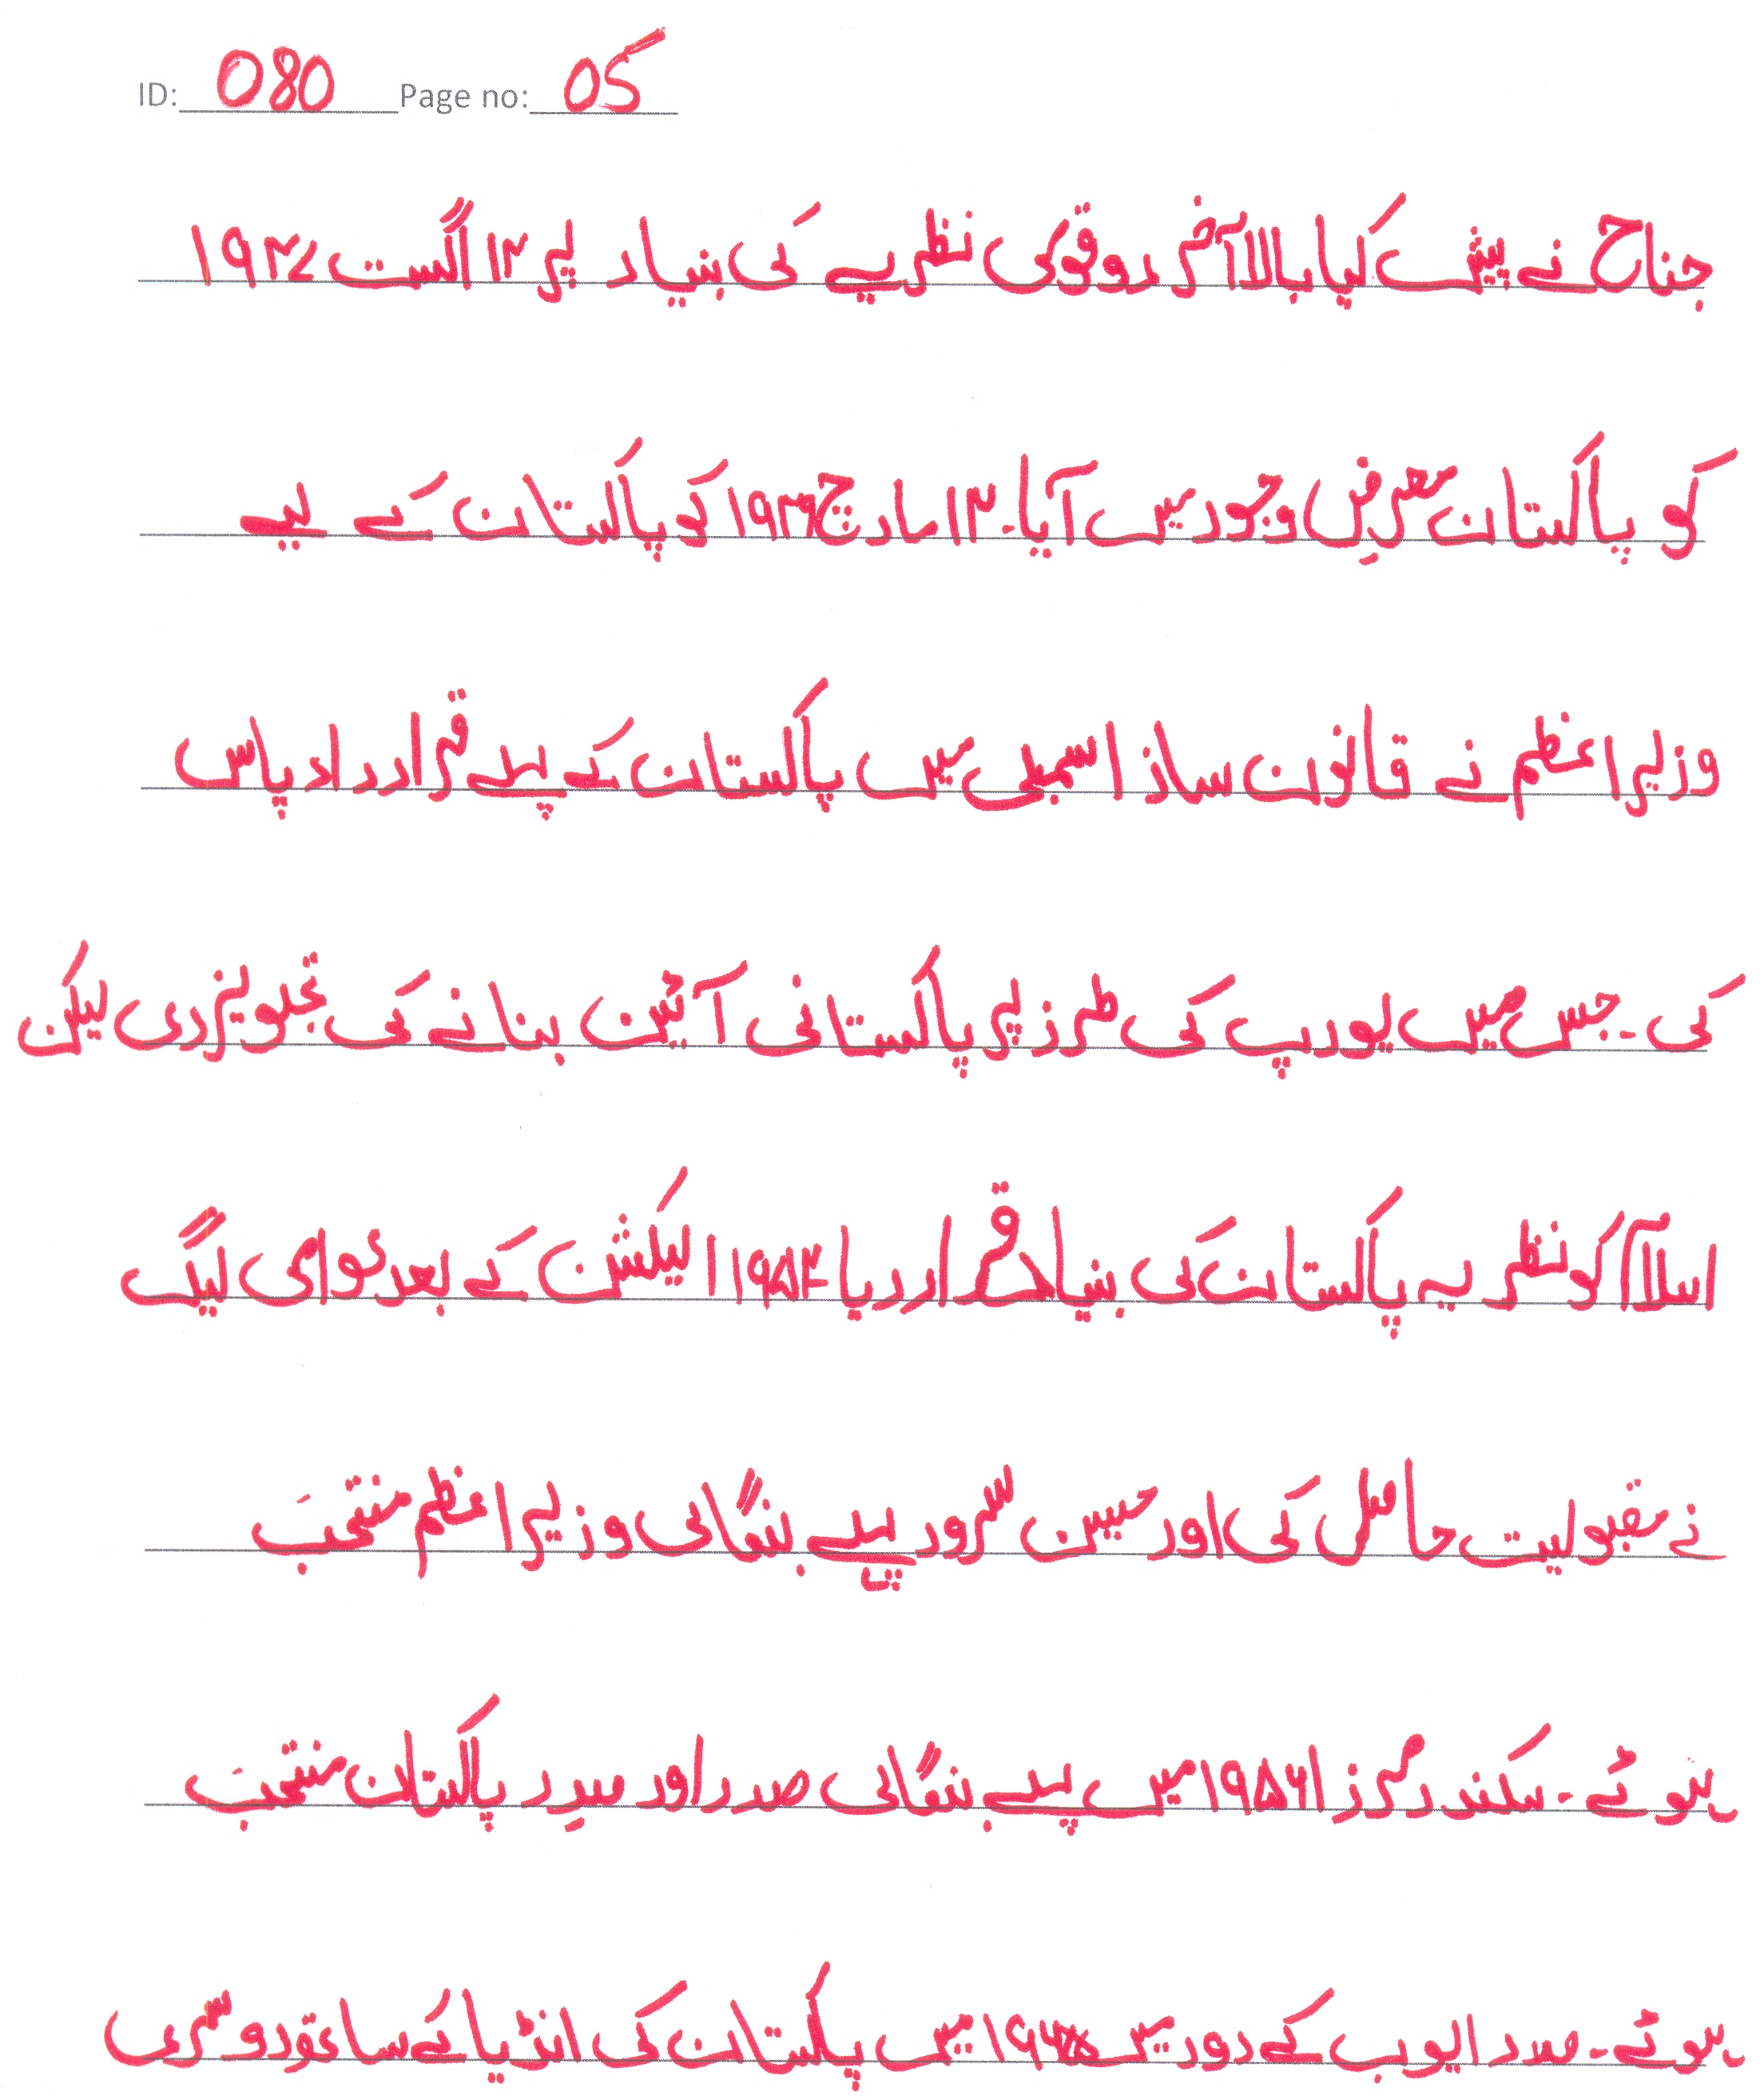 ID: 080 Page no: 05
جناح نے پیش کیا بالاآخر دو قومی نظریے کی بنیاد پر ۱۴ اگست ۱۹۴۷
کو پاکستان معرض وجود میں آیا۔ ۱۲ مارچ ۱۹۴۹ کو پاکستان کے لیے
وزیراعظم نے قانون ساز اسمبلی میں پاکستان کے پہلے قرارداد پاس
کی۔ جس میں یورپ کی طرز پر پاکستانی آئین بنانے کی تجویز دی لیکن
اسلام کو نظریہ پاکستان کی بنیاد قرار دیا ۱۹۵۴ الیکشن کے بعد عوامی لیگ
نے مقبولیت حاصل کی اور حسین سرور پہلے بنگالی وزیراعظم منتخب
ہوئے۔ سکندر مرزا ۱۹۵۶ میں پہلے بنگالی صدر اور صدر پاکستان منتخب
ہوئے۔ صدر ایوب کے دور میں ۱۹۶۵ میں پاکستان کی انڈیا کے ساتھ دوسری